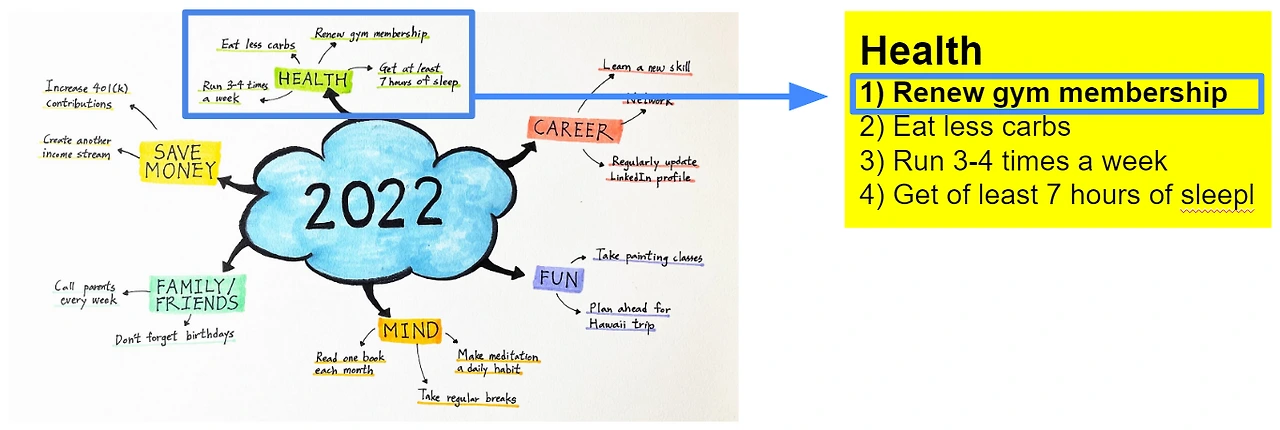 Eat less carbs
Renew gym membership
HEALTH
Run 3-4 times
a week
Get at least
7 hours of sleep
Increase 401(k)
contributions
Create another
income stream
SAVE
MONEY
Learn a new skill
Network
CAREER
Regularly update
LinkedIn profile
2022
Call parents
every week
FAMILY/
FRIENDS
Don't forget birthdays
MIND
Read one book
each month
Make meditation
a daily habit
Take regular breaks
FUN
Take painting classes
Plan ahead for
Hawaii trip
Health
1) Renew gym membership
2) Eat less carbs
3) Run 3-4 times a week
4) Get of least 7 hours of sleepl